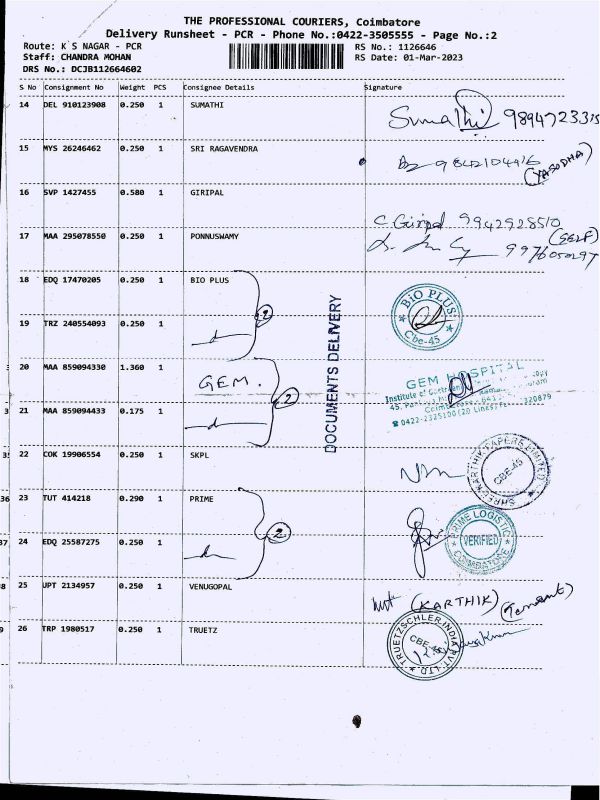 THE PROFESSIONAL COURIERS, Coimbatore
Delivery Runsheet - PCR - Phone No.:0422-3505555 - Page No.:2
Route: K S NAGAR - PCR
Staff: CHANDRA MOHAN
DRS No.: DCJB112664602
RS No.: 1126646
RS Date: 01-Mar-2023
S No Consignment No Weight PCS Consignee Details Signature
14 DEL 910123908 0.250 1 SUMATHI Sumathi 9894723315
15 MYS 26246462 0.250 1 SRI RAGAVENDRA 9842104916 (YASODHA)
16 SVP 1427455 0.580 1 GIRIPAL C. Giripal 9942928510
17 MAA 295078550 0.250 1 PONNUSWAMY (SELF) 9976050297
18 EDQ 17470205 0.250 1 BIO PLUS 2 BIO PLUS Cbe-45
19 TRZ 240554093 0.250 1
DOCUMENTS DELIVERY
20 MAA 859094330 1.360 1 GEM. 2 GEM HOSPITAL
Institute of
45,
0422-2325100 (20 Lines) 320879
21 MAA 859094433 0.175 1
22 COK 19906554 0.250 1 SKPL SHREE KARTHIK PAPERS LIMITED CBE-45
23 TUT 414218 0.290 1 PRIME 2 PRIME LOGISTIC VERIFIED COIMBATORE
24 EDQ 25587275 0.250 1
25 UPT 2134957 0.250 1 VENUGOPAL (KARTHIK) (Tenant)
26 TRP 1980517 0.250 1 TRUETZ TRUETZSCHLER INDIA PVT. LTD. CBE-45